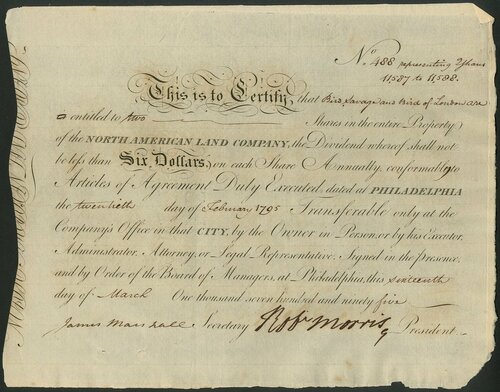 No. 488 representing 2 shares
11587 to 11588.
This is to Certify, that Bird Savage and Bird of London are
entitled to two Shares in the entire Property
of the NORTH AMERICAN LAND COMPANY, the Dividend whereof shall not
be less than Six Dollars, on each Share Annually, conformably to
Articles of Agreement Duly Executed, dated at PHILADELPHIA
the twentieth day of February 1795 Transferable only at the
Company's Office in that CITY, by the Owner in Person, or by his Executor,
Administrator, Attorney, or Legal Representative. Signed in the presence,
and by Order of the Board of Managers, at Philadelphia, this sixteenth
day of March One thousand seven hundred and ninety five
James Marshall Secretary Robt Morris President